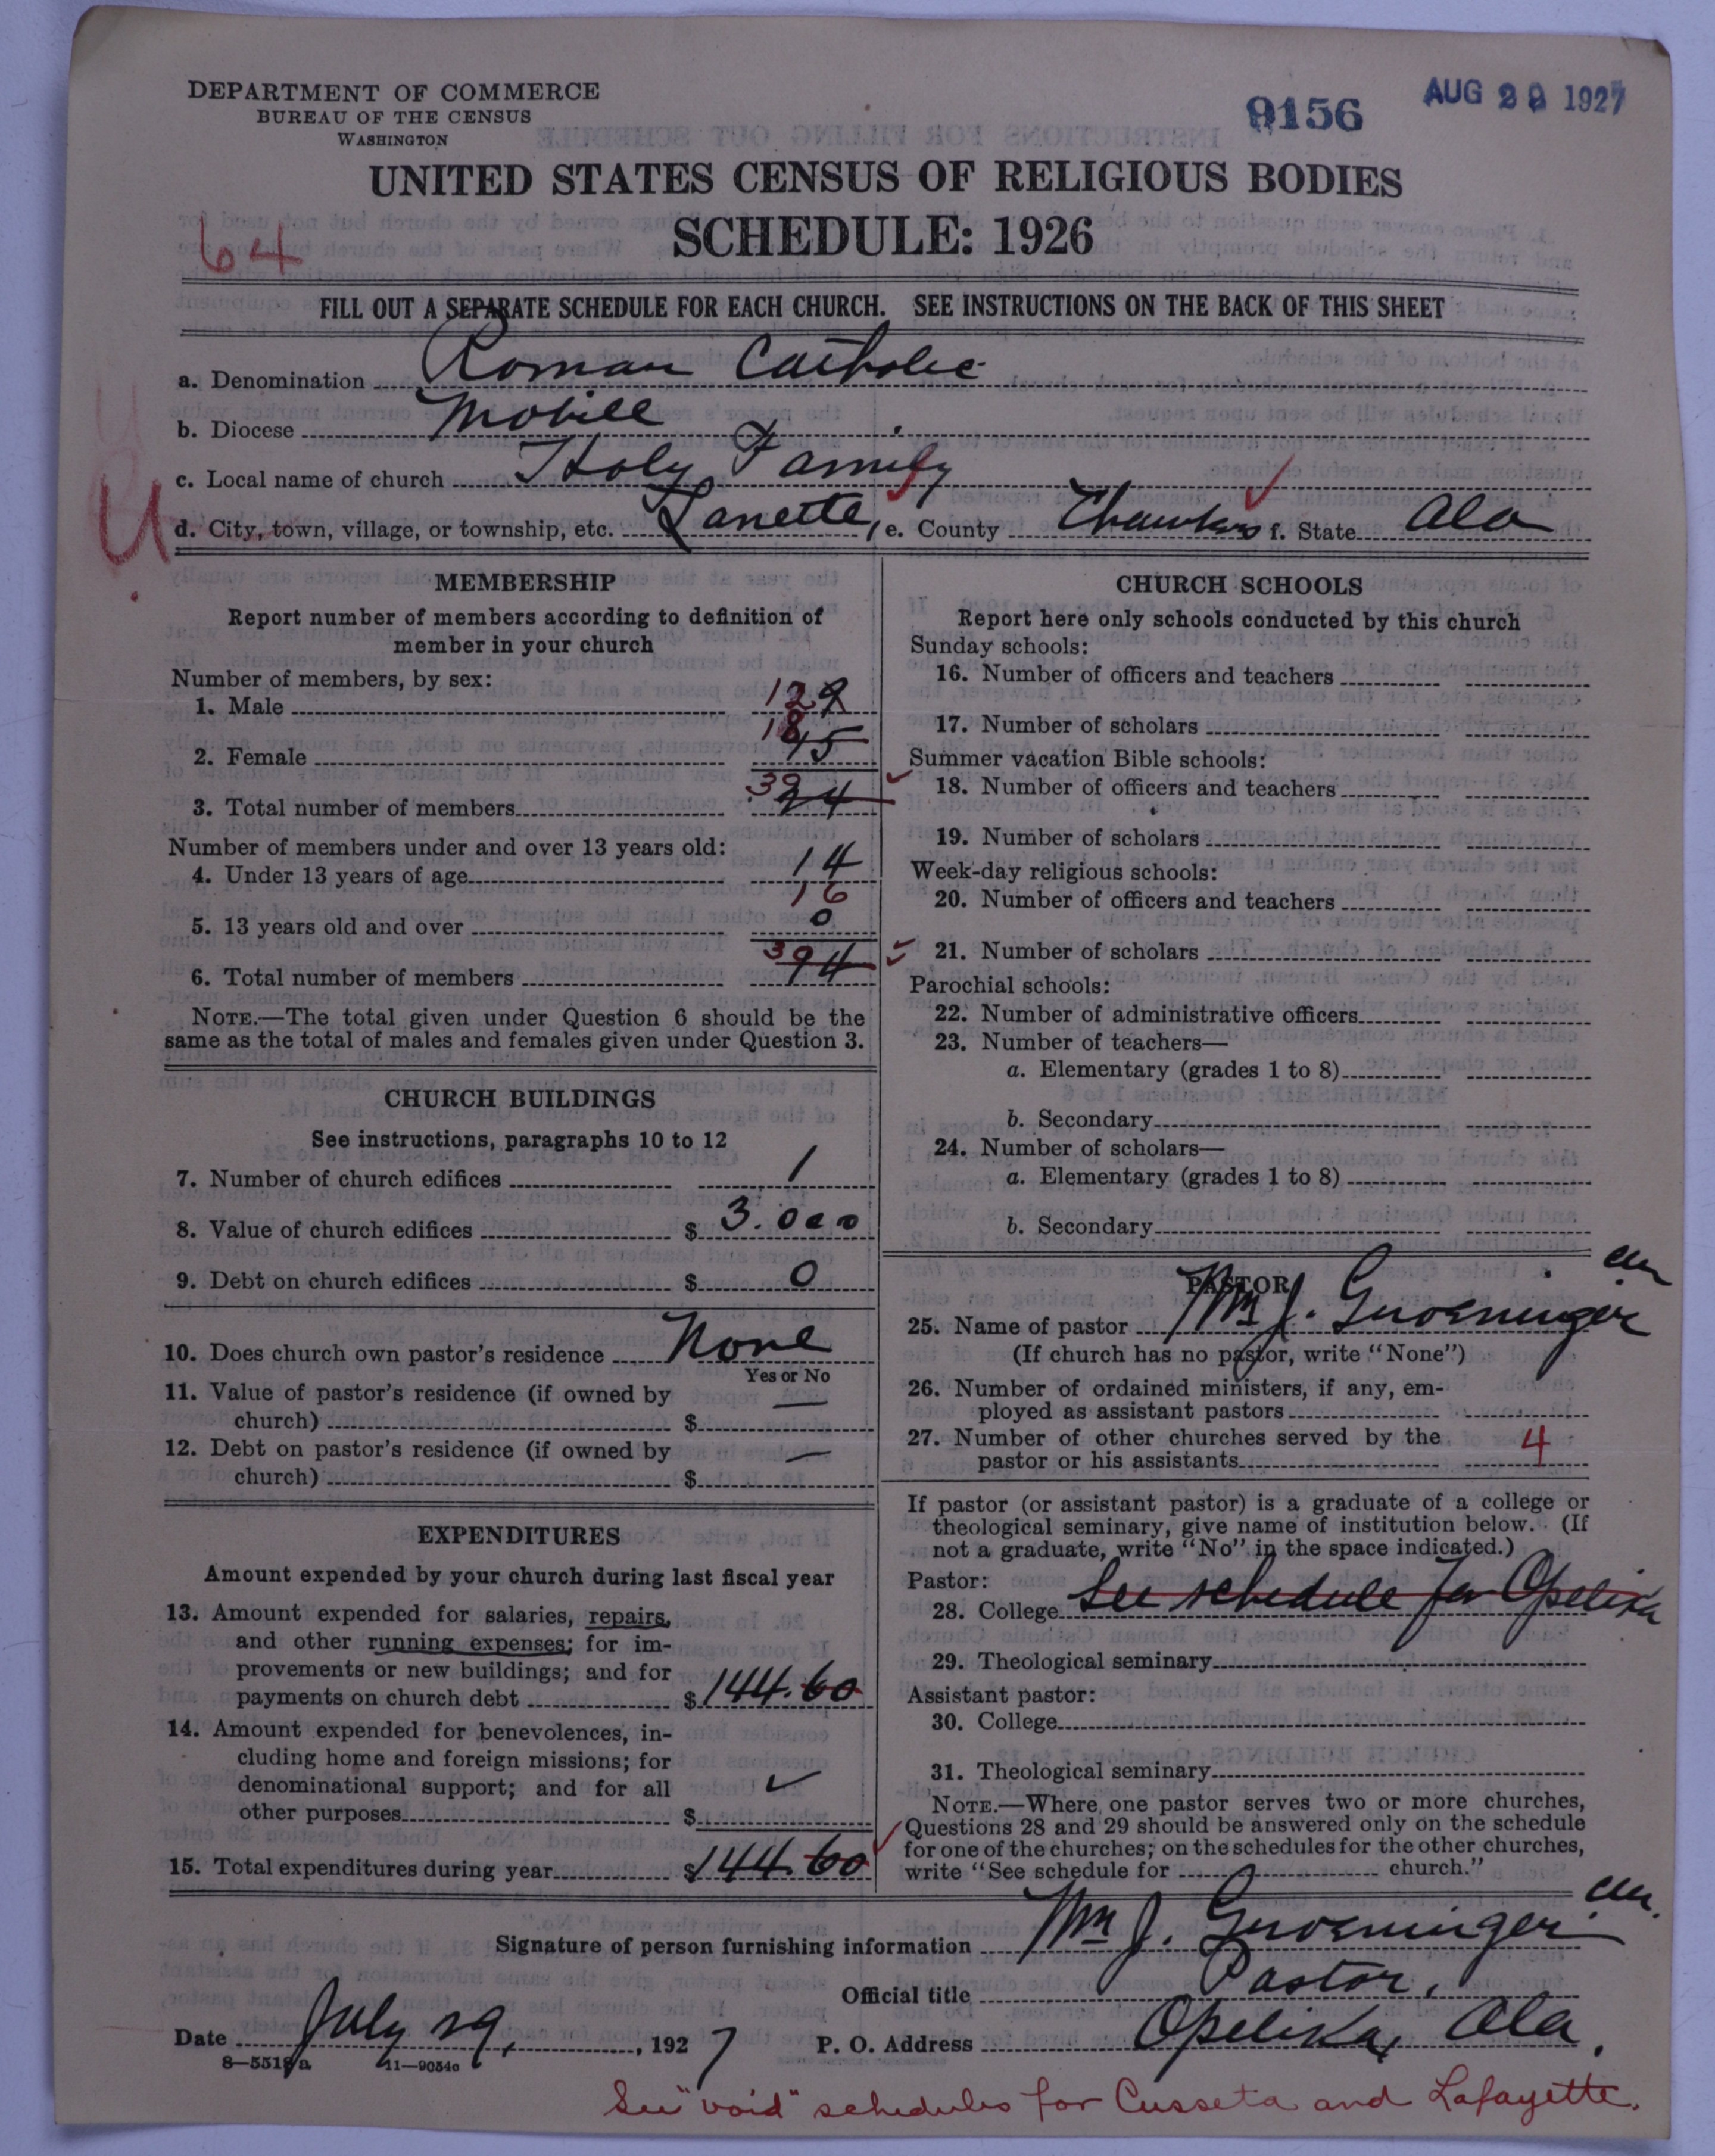 DEPARTMENT OF COMMERCE
BUREAU OF THE CENSUS
WASHINGTON
9156
AUG 29 1927
UNITED STATES CENSUS OF RELIGIOUS BODIES
SCHEDULE: 1926
64
FILL OUT A SEPARATE SCHEDULE FOR EACH CHURCH. SEE INSTRUCTIONS ON THE BACK OF THIS SHEET
a. Denomination Roman Catholic
b. Diocese Mobile
c. Local name of church Holy Family
U
d. City, town, village, or township, etc. Lanette, e. County f. State Ala
MEMBERSHIP
Report number of members according to definition of
member in your church
Number of members, by sex:
1. Male
2. Female
3. Total number of members
Number of members under and over 13 years old:
4. Under 13 years of age 14
16
5. 13 years old and over 0
6. Total number of members
NOTE.—The total given under Question 6 should be the
same as the total of males and females given under Question 3.
CHURCH BUILDINGS
See instructions, paragraphs 10 to 12
7. Number of church edifices 1
8. Value of church edifices $ 3.000
9. Debt on church edifices $ 0
10. Does church own pastor's residence None
Yes or No
11. Value of pastor's residence (if owned by
church) $ —
12. Debt on pastor's residence (if owned by
church) $ —
EXPENDITURES
Amount expended by your church during last fiscal year
13. Amount expended for salaries, repairs,
and other running expenses; for im-
provements or new buildings; and for
payments on church debt $ 144.60
14. Amount expended for benevolences, in-
cluding home and foreign missions; for
denominational support; and for all
other purposes $
15. Total expenditures during year $ 144.60
CHURCH SCHOOLS
Report here only schools conducted by this church
Sunday schools:
16. Number of officers and teachers
17. Number of scholars
Summer vacation Bible schools:
18. Number of officers and teachers
19. Number of scholars
Week-day religious schools:
20. Number of officers and teachers
21. Number of scholars
Parochial schools:
22. Number of administrative officers
23. Number of teachers—
a. Elementary (grades 1 to 8)
b. Secondary
24. Number of scholars—
a. Elementary (grades 1 to 8)
b. Secondary
PASTOR
25. Name of pastor Wm J. Groeninger cm
(If church has no pastor, write "None")
26. Number of ordained ministers, if any, em-
ployed as assistant pastors
27. Number of other churches served by the
pastor or his assistants 4
If pastor (or assistant pastor) is a graduate of a college or
theological seminary, give name of institution below. (If
not a graduate, write "No" in the space indicated.)
Pastor:
28. College See schedule for Opelika
29. Theological seminary
Assistant pastor:
30. College
31. Theological seminary
NOTE.—Where one pastor serves two or more churches,
Questions 28 and 29 should be answered only on the schedule
for one of the churches; on the schedules for the other churches,
write "See schedule for church."
Signature of person furnishing information Wm J. Groeninger cm.
Official title Pastor,
Date July 29, 1927 P. O. Address Opelika, Ala.
8—5518a 11—9054c
See "void" schedules for Cusseta and Lafayette.